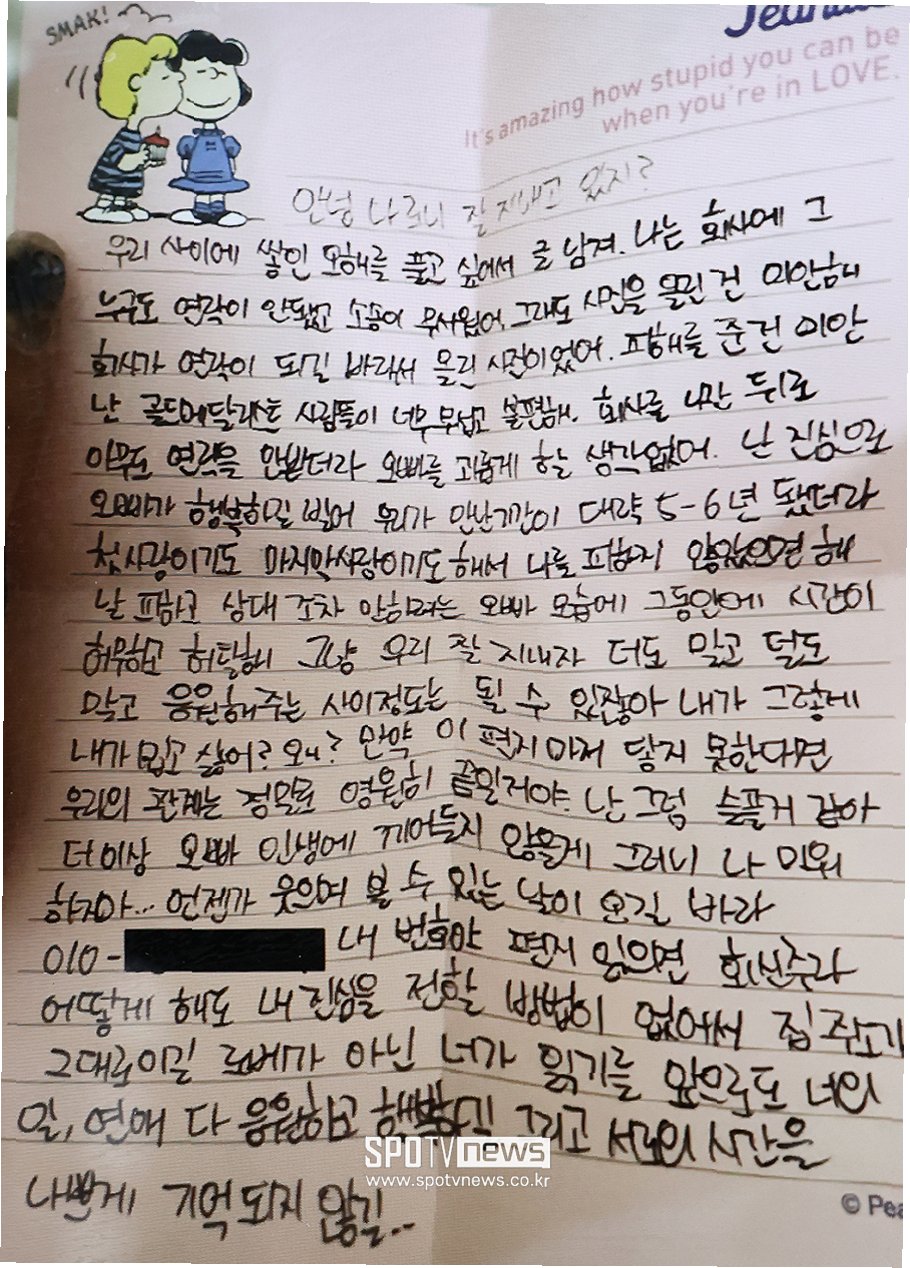 SMAK!
It's amazing how stupid you can be
when you're in LOVE.
안녕 나르니 잘 지내고 있지?
우리 사이에 쌓인 오해를 풀고 싶어서 글 남겨. 나는 회사에 그
누구도 연락이 안됐고 소송이 무서웠어. 그래도 사진을 올린 건 미안해
회사가 연락이 되길 바래서 올린 사진이었어. 피해를 준건 미안
난 골드메달리스트 사람들이 너무 무섭고 불편해. 회사를 나간 뒤로
아무도 연락을 안받더라 오빠를 괴롭게 할 생각없어. 난 진심으로
오빠가 행복하길 빌어 우리가 만난기간이 대략 5-6년 됐더라
첫사랑이기도 마지막사랑이기도해서 나를 피하지 않았으면 해
날 피하고 상대 조차 안하려는 오빠 모습에 그동안에 시간이
허무하고 허탈해 그냥 우리 잘 지내자 더도 말고 덜도
말고 응원해주는 사이정도는 될 수 있잖아 내가 그렇게
내가 밉고 싫어? 왜? 만약 이 편지마저 닿지 못한다면
우리의 관계는 정말로 영원히 끝일거야. 난 그럼 슬플거 같아
더이상 오빠 인생에 끼어들지 않을게 그러니 나 미워
하지마... 언젠가 웃으며 볼 수 있는 날이 오길 바라
010- 내 번호야 편지 읽으면 회신주라
어떻게 해도 내 진심을 전할 방법이 없어서 집 주소가
그대로이길 로베가 아닌 너가 읽기를 앞으로도 너의
일, 연애 다 응원하고 행복하길 그리고 서로의 시간을
나쁘게 기억되지 않길..
SPOTVnews
www.spotvnews.co.kr